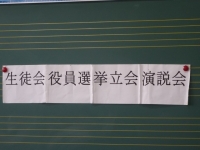 生徒会役員選挙立会演説会